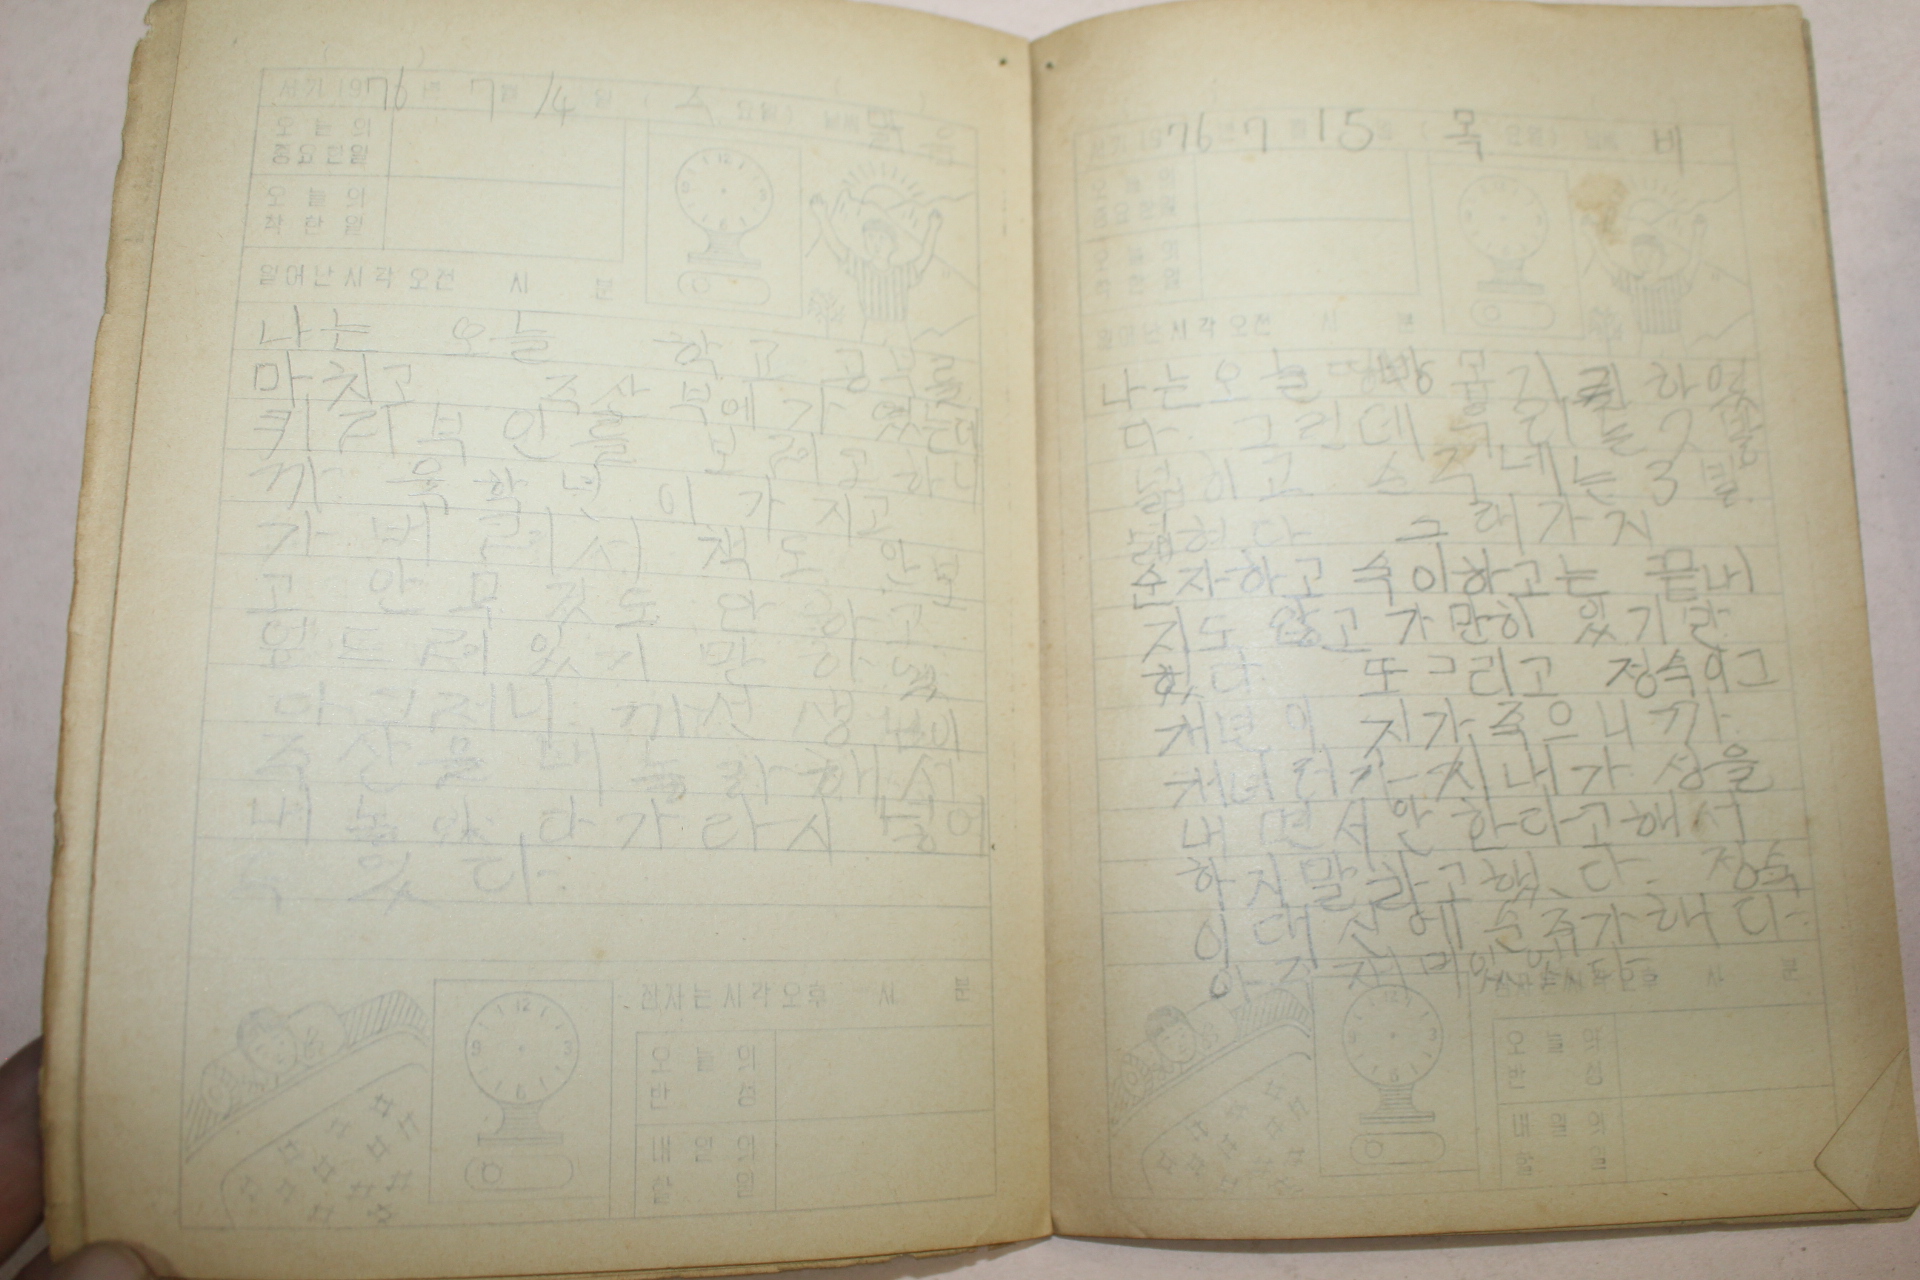 서기 1976년 7월 14일 (수요일) 날씨 맑음
오늘의
중요한일
오늘의
착한일
일어난시각오전 시 분
나는 오늘 학교 공부를
마치고 주산부에 가였는데
키 부인을 보려고 하니
까 육학년이 가지고
가 버려서 책도 안보
고 안 것도 안 하고
엎드려 있기 만 하
아 그러니까 선생님이
주산을 내놓라 해서
내놓았다가 다시 넣어
다.
잠자는시각오후 시 분
오늘의
반성
내일의
할일
서기 1976년 7월 15일 (목요일) 날씨 비
오늘의
중요한일
오늘의
착한일
일어난시각오전 시 분
나는오늘땅 를하였
다. 그런데 우리는 2
넓이고 숙네는 3
넓혀다 그래가지
순자하고 숙이하고는 끝내
지도 않고 가만히 있기만
했다. 또그리고 정숙이그
개년이 지가 죽으니까.
개네 지내가 성을
내면서 안한다고해서
하지말라고했다. 정숙
이대신에 순 가해다.
아주 재미있었다
잠자는시각오후 시 분
오늘의
반성
내일의
할일